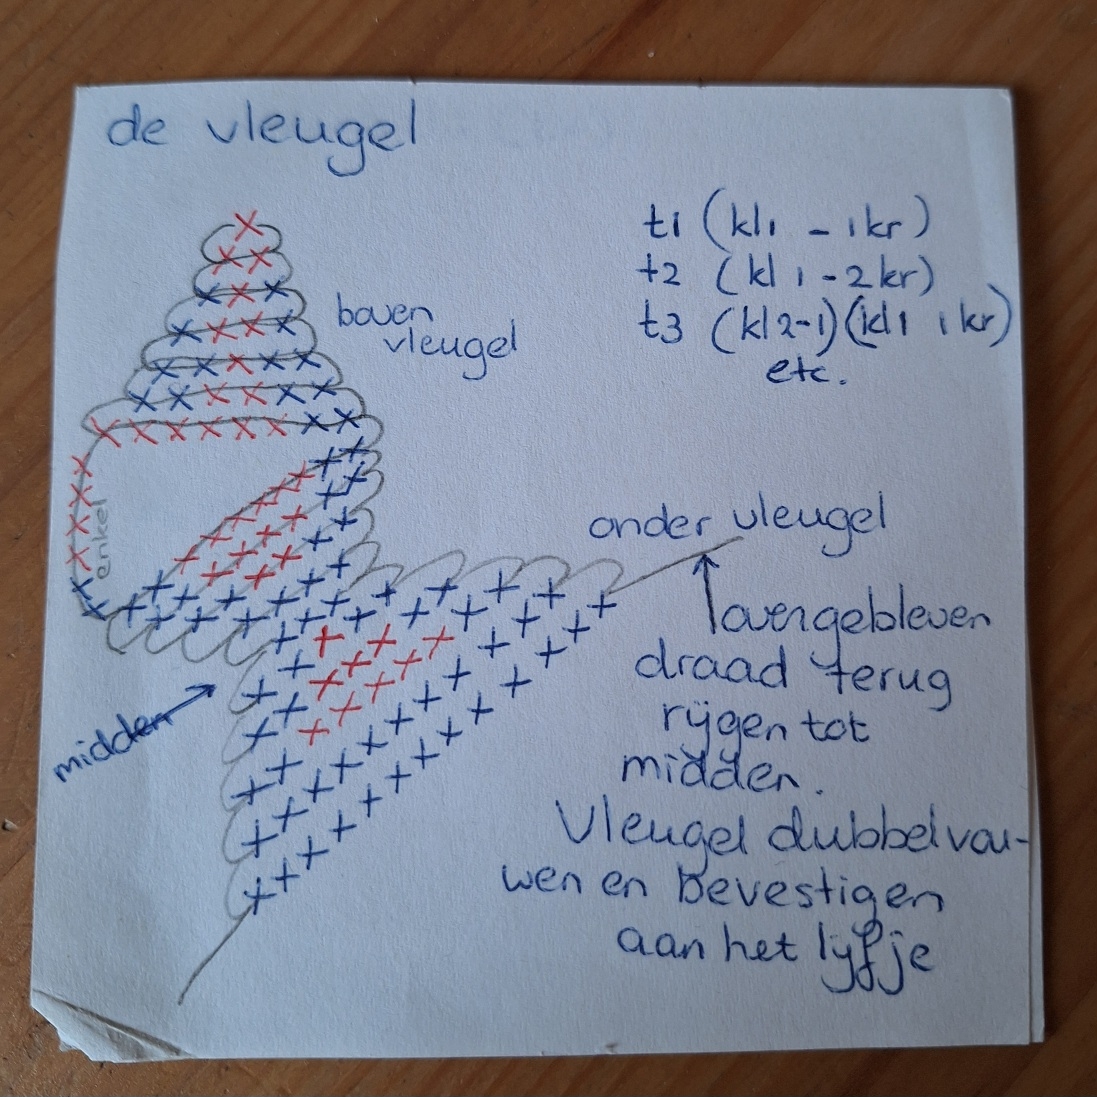 de vleugel
t1 (kl1 - 1kr)
t2 (kl 1 - 2 kr)
t3 (kl 2-1)(kl1 1 kr)
etc.
boven
vleugel
enkel
onder vleugel
overgebleven
draad terug
rijgen tot
midden.
midden
Vleugel dubbelvou-
wen en bevestigen
aan het lijfje